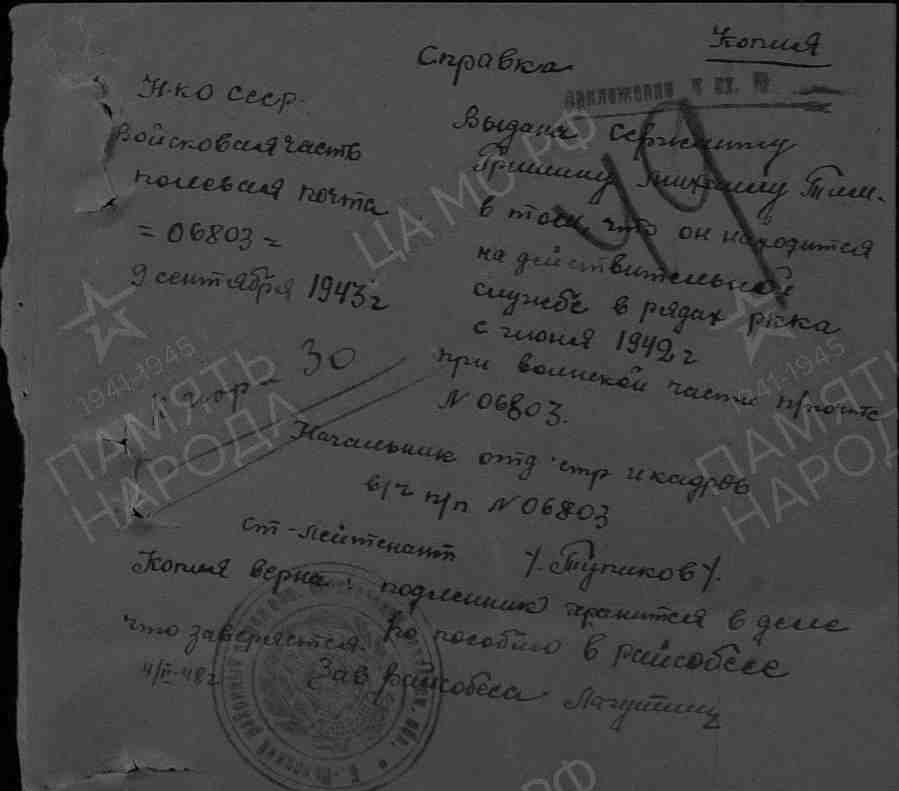 Копия
Справка
приложение к вх. №
49
Н.К.О СССР.
Войсковая часть
полевая почта
= 06803 =
9 сентября 1943 г
30
Выдана сержанту
Гришину
в том, что он находится
на действительной
службе в рядах РККА
с июня 1942 г
при воинской части п/почте
N 06803.
Начальник отд. стр и кадров
в/ч п/п N 06803
ст-лейтенант /.Тупиков/.
Копия верна: подлинник хранится в деле
по пособию в райсобесе
что заверяется.
4/II-48 г Зав райсобеса Лагутин
ЦА МО РФ
1941-1945
ПАМЯТЬ
НАРОДА
1941-1945
ПАМЯТЬ
НАРОДА
РФ